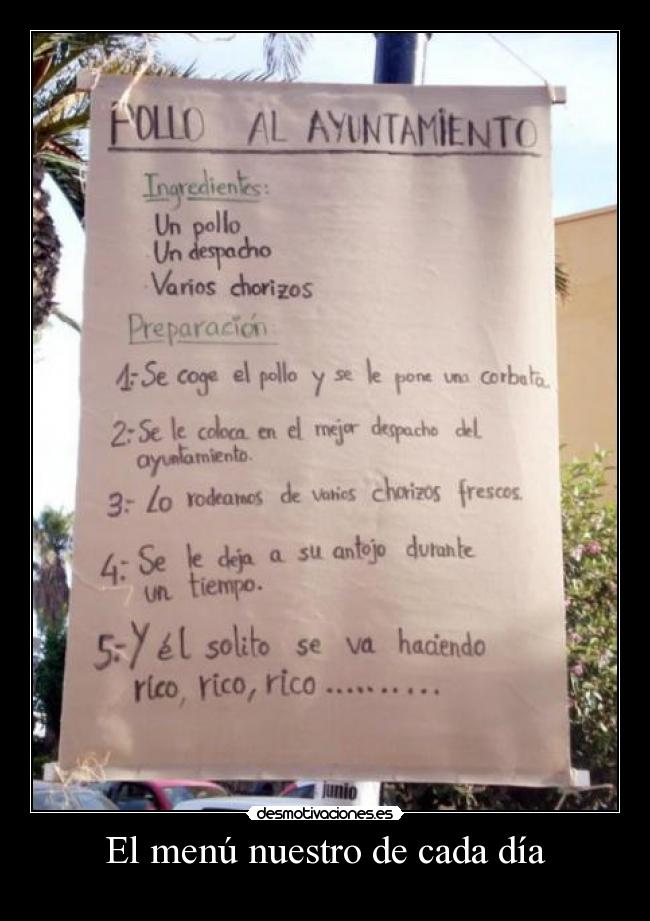 POLLO AL AYUNTAMIENTO
Ingredientes:
Un pollo
Un despacho
Varios chorizos
Preparación
1:- Se coge el pollo y se le pone una corbata.
2:- Se le coloca en el mejor despacho del
ayuntamiento.
3:- Lo rodeamos de varios chorizos frescos.
4:- Se le deja a su antojo durante
un tiempo.
5:- Y él solito se va haciendo
rico, rico, rico ..........
junio
desmotivaciones.es
El menú nuestro de cada día